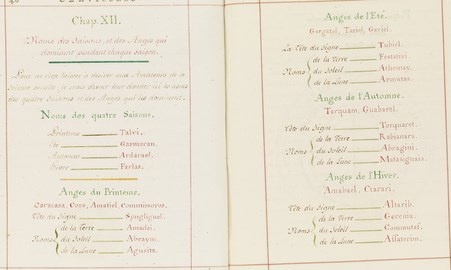 Chap. XII.
Noms des Saisons, et des Anges qui
dominent pendant chaque saison.
des quatre Saisons et des Anges qui les
Noms des quatre Saisons.
Printems Talvi.
Eté Gasmaran.
Automne Ardarael.
Hiver Farlas.
Anges du Printems.
Caracasa, Core, Amatiel, Commissoros.
Tête du Signe Spugliguel.
Noms de la Terre Amadai,
du Soleil Abraym,
de la Lune Agusita.
Anges de l'Eté.
Gargatel, Tariel, Gaviel.
La Tête du Signe Tubiel.
Noms de la Terre Festativi
du Soleil Athemay,
de la Lune Armatas.
Anges de l'Automne.
Tarquam, Guabarel.
Tête du Signe Torquaret.
Noms de la Terre Rabianara.
du Soleil Abragini.
de la Lune Matasignais.
Anges de l'Hiver.
Amabael, Ctarari.
Tête du Signe Altarib.
Noms de la Terre Gerenia.
du Soleil Commutaf.
de la Lune Affaterim.